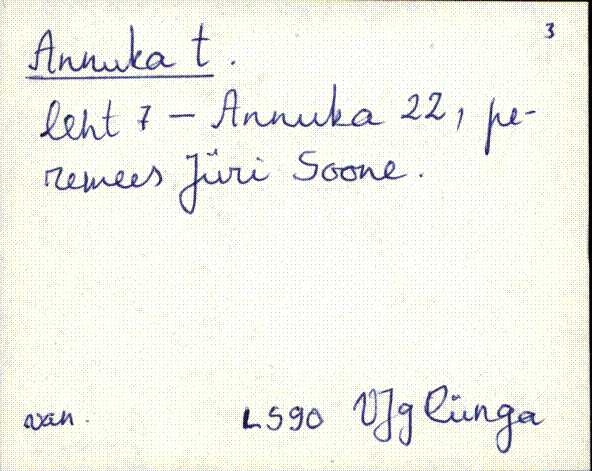 3
Annuka t.
leht 7 – Annuka 22, pe-
remees Jüri Soone.
van. L590 VJg Lünga